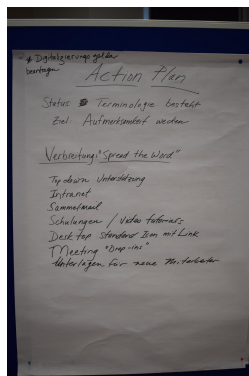 * Digitalisierungsgelder
beantragen
Action Plan
Status: Terminologie besteht
Ziel: Aufmerksamkeit wecken
Verbreitung: "Spread the Word"
Top down Unterstützung
Intranet
Sammelmail
Schulungen / Video tutorials
Desktop Standard Icon mit Link
Meeting "Drop-ins"
Unterlagen für neue Mitarbeiter